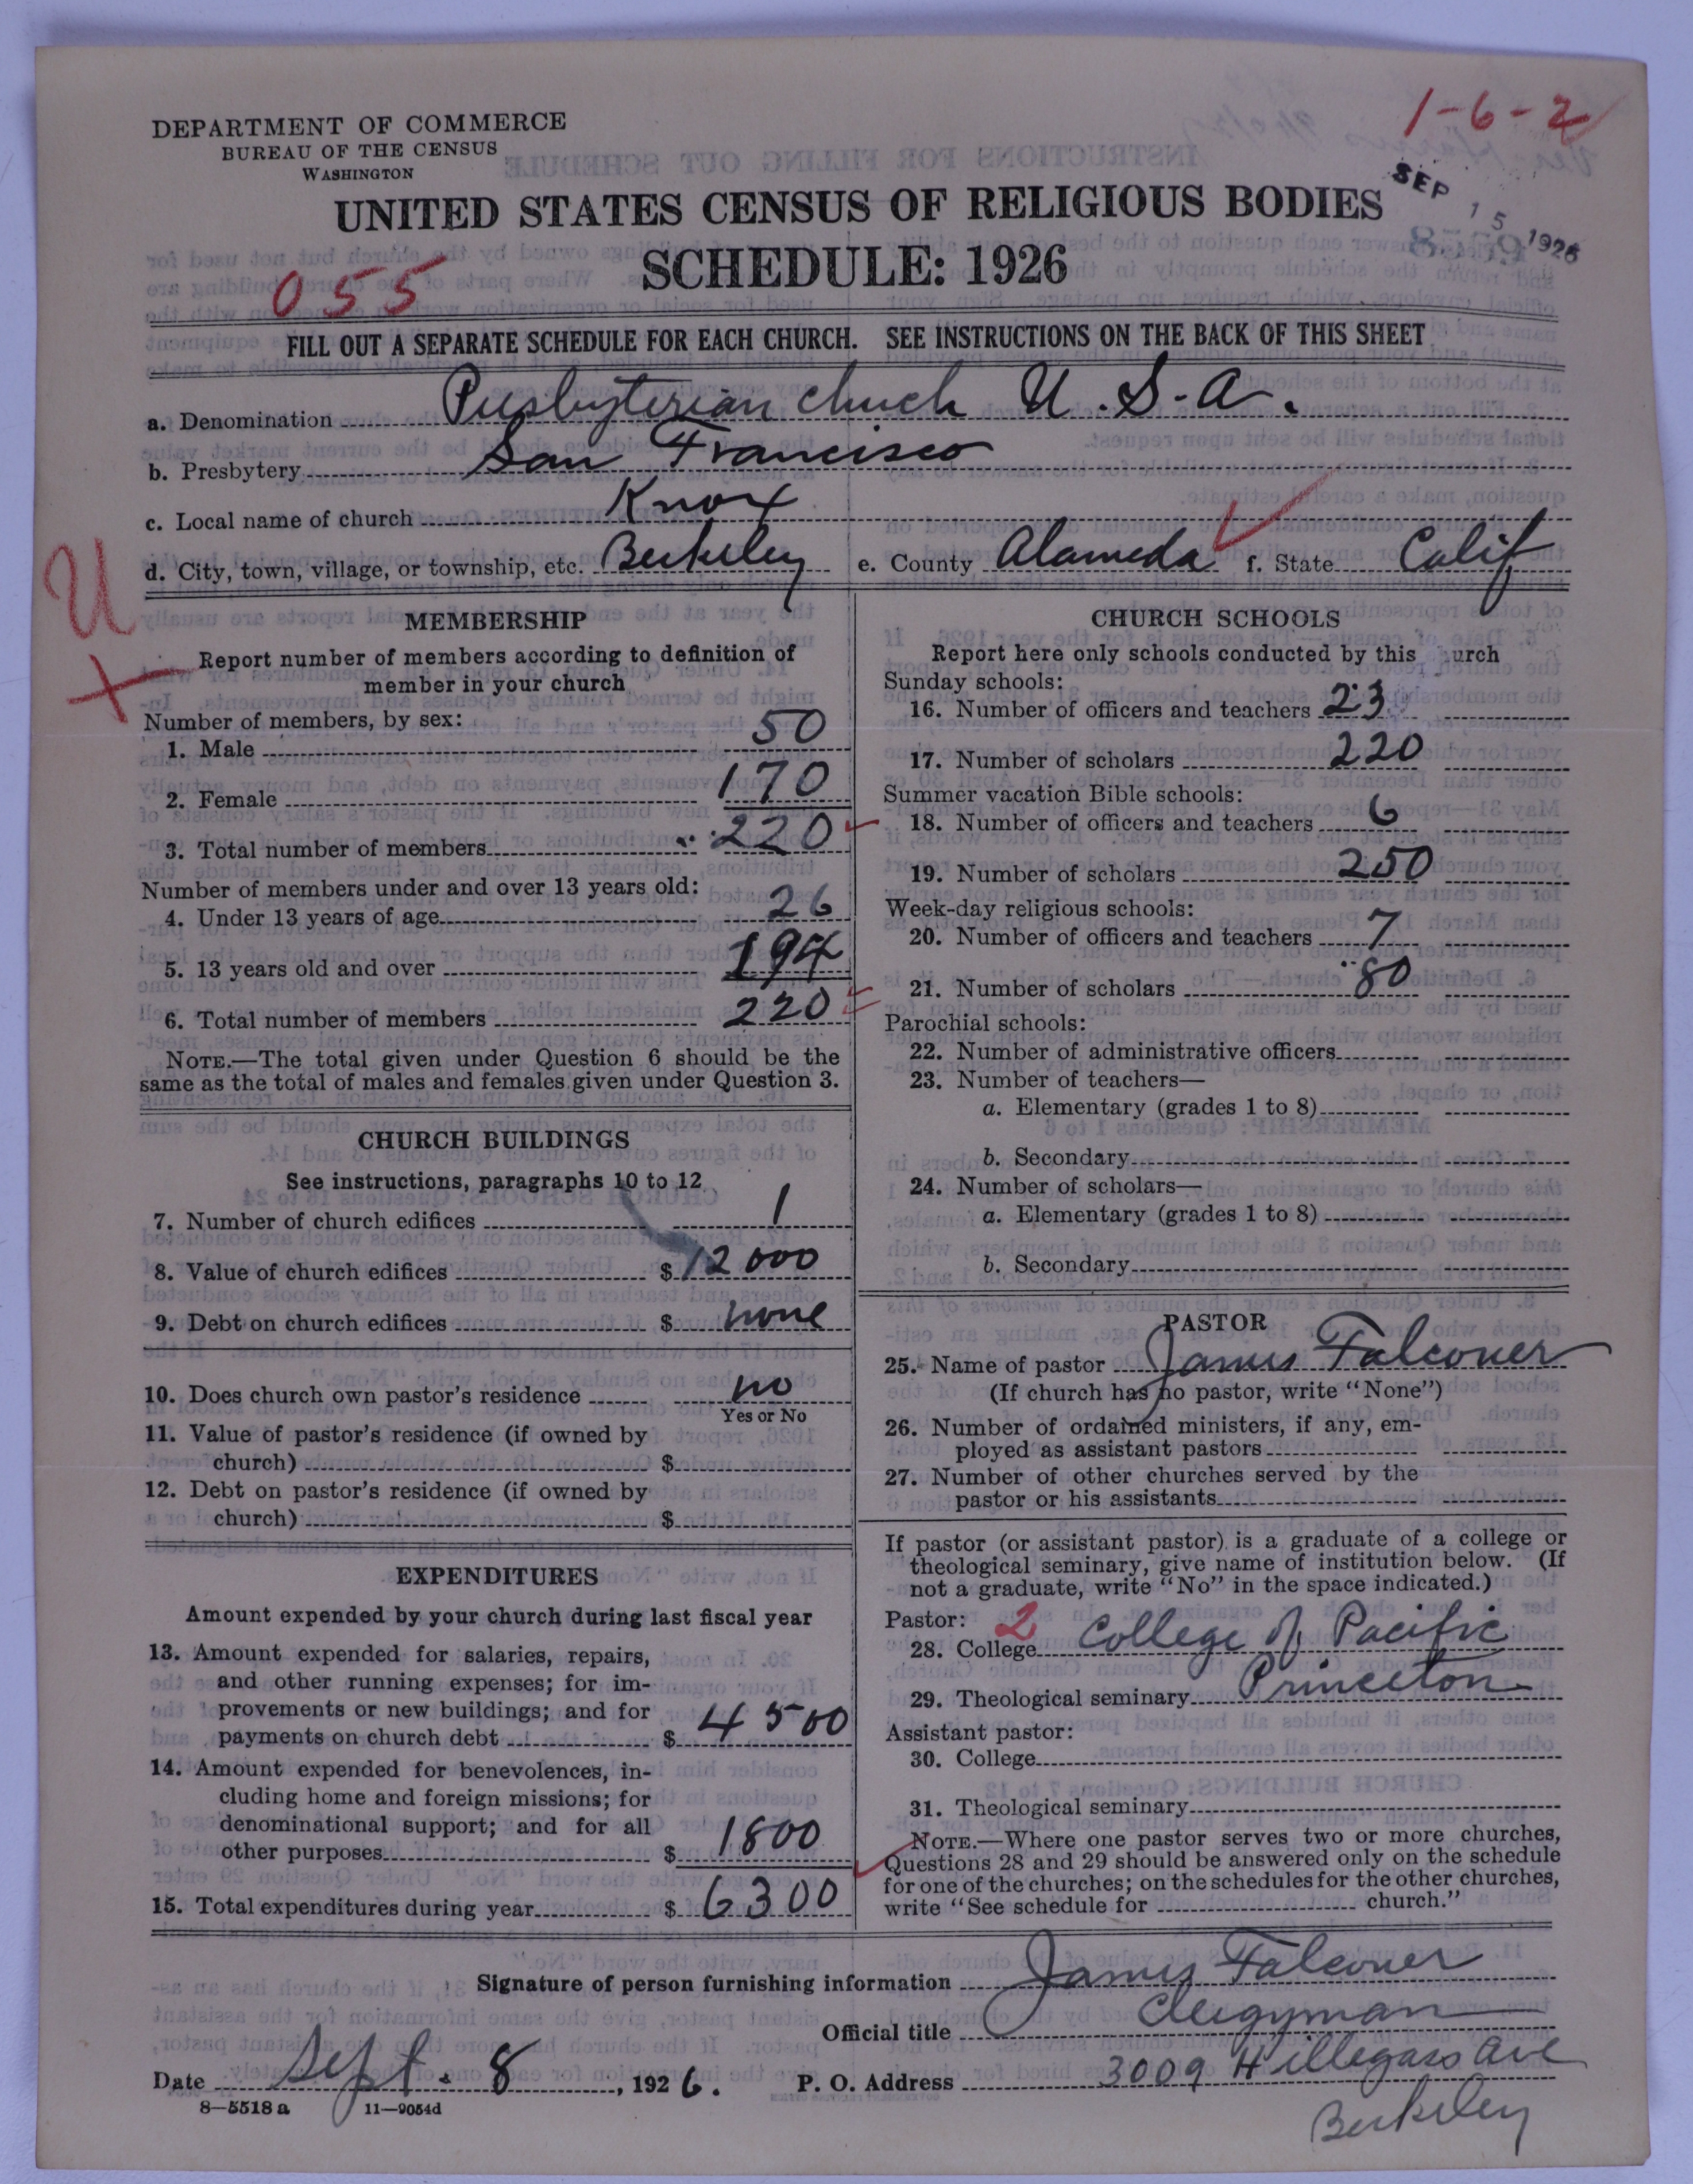 1-6-2
DEPARTMENT OF COMMERCE
BUREAU OF THE CENSUS
WASHINGTON
UNITED STATES CENSUS OF RELIGIOUS BODIES
SEP 15 1926
8559
SCHEDULE: 1926
055
FILL OUT A SEPARATE SCHEDULE FOR EACH CHURCH. SEE INSTRUCTIONS ON THE BACK OF THIS SHEET
a. Denomination Presbyterian church U.S.A.
b. Presbytery San Francisco
c. Local name of church Knox
d. City, town, village, or township, etc. Berkeley e. County Alameda f. State Calif
U
MEMBERSHIP
Report number of members according to definition of
member in your church
Number of members, by sex:
1. Male 50
2. Female 170
3. Total number of members 220
Number of members under and over 13 years old:
4. Under 13 years of age 26
5. 13 years old and over 194
6. Total number of members 220
NOTE.—The total given under Question 6 should be the
same as the total of males and females given under Question 3.
CHURCH BUILDINGS
See instructions, paragraphs 10 to 12
7. Number of church edifices 1
8. Value of church edifices $ 12000
9. Debt on church edifices $ none
10. Does church own pastor's residence no
Yes or No
11. Value of pastor's residence (if owned by
church) $
12. Debt on pastor's residence (if owned by
church) $
EXPENDITURES
Amount expended by your church during last fiscal year
13. Amount expended for salaries, repairs,
and other running expenses; for im-
provements or new buildings; and for
payments on church debt $ 4500
14. Amount expended for benevolences, in-
cluding home and foreign missions; for
denominational support; and for all
other purposes $ 1800
15. Total expenditures during year $ 6300
CHURCH SCHOOLS
Report here only schools conducted by this urch
Sunday schools:
16. Number of officers and teachers 23
17. Number of scholars 220
Summer vacation Bible schools:
18. Number of officers and teachers 6
19. Number of scholars 250
Week-day religious schools:
20. Number of officers and teachers 7
21. Number of scholars 80
Parochial schools:
22. Number of administrative officers
23. Number of teachers—
a. Elementary (grades 1 to 8)
b. Secondary
24. Number of scholars—
a. Elementary (grades 1 to 8)
b. Secondary
PASTOR
25. Name of pastor James Falconer
(If church has no pastor, write "None")
26. Number of ordained ministers, if any, em-
ployed as assistant pastors
27. Number of other churches served by the
pastor or his assistants
If pastor (or assistant pastor) is a graduate of a college or
theological seminary, give name of institution below. (If
not a graduate, write "No" in the space indicated.)
Pastor: 2
28. College College of Pacific
29. Theological seminary Princeton
Assistant pastor:
30. College
31. Theological seminary
NOTE.—Where one pastor serves two or more churches,
Questions 28 and 29 should be answered only on the schedule
for one of the churches; on the schedules for the other churches,
write "See schedule for church."
Signature of person furnishing information James Falconer
Official title Clegyman
Date Sept. 8, 1926. P. O. Address 3009 Hillegass Ave
Berkeley
8—5518 a 11—9054d